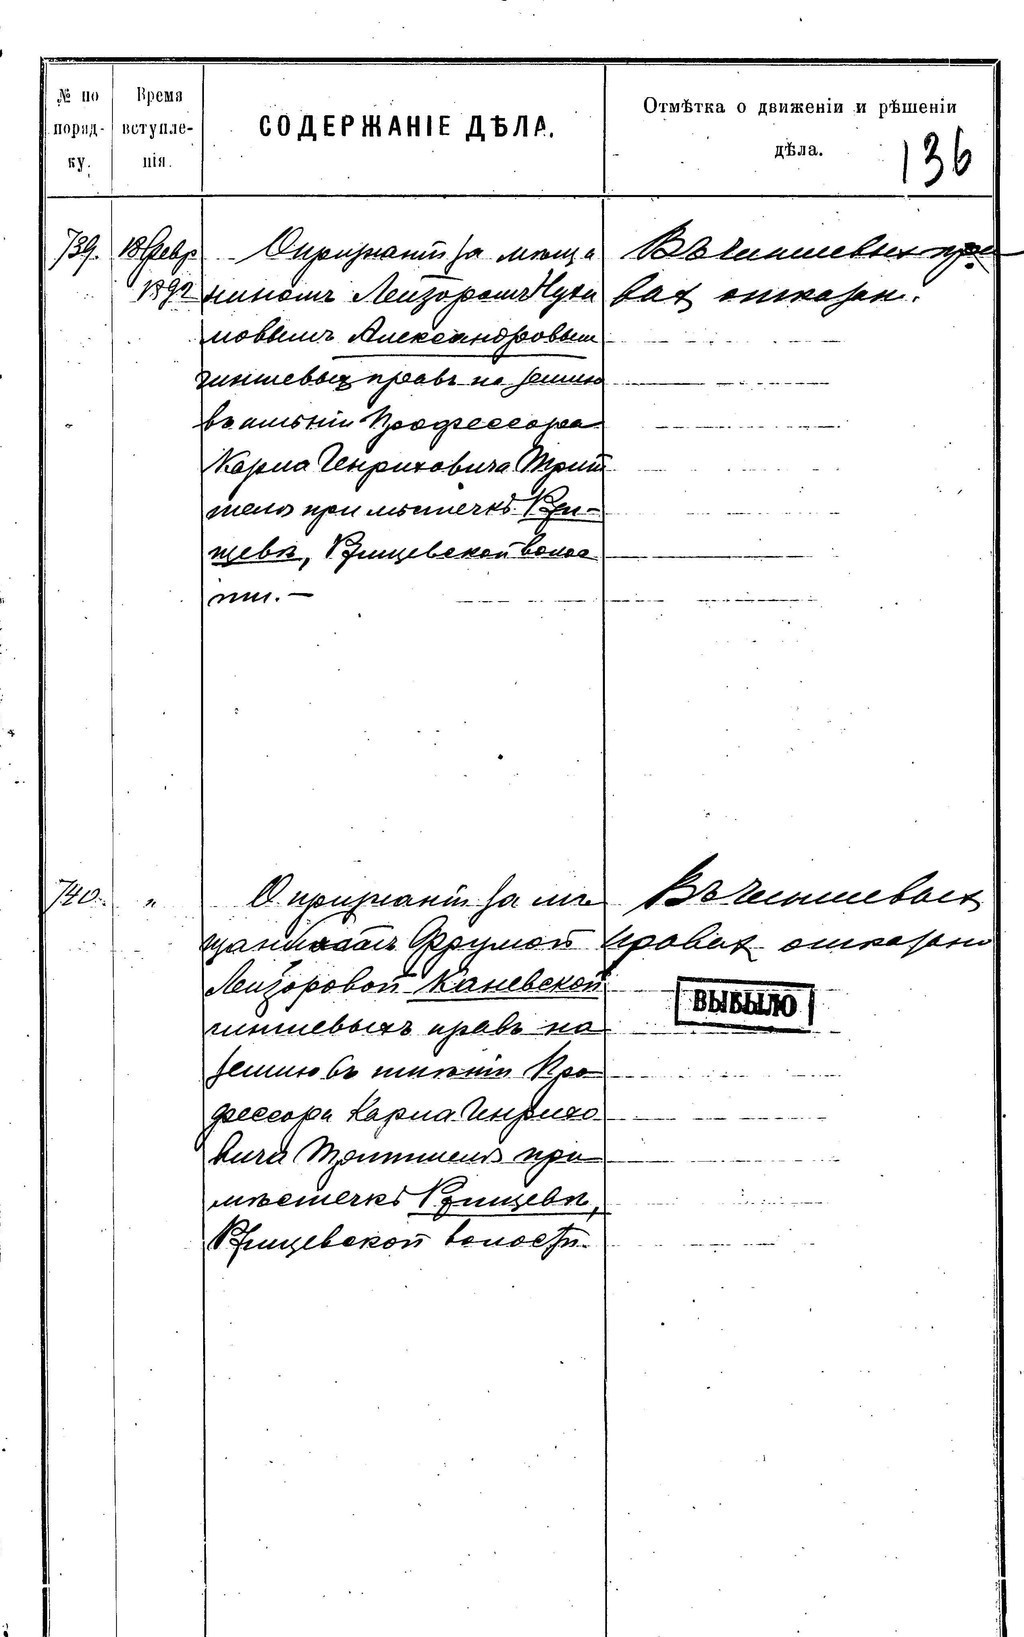 № по порядку.
Время вступленія.
СОДЕРЖАНІЕ ДѢЛА.
Отмѣтка о движеніи и рѣшеніи дѣла.
136
739.
18 Февр
1892
О признаніи за мѣща
ниномъ Лейзоромъ Нухи
мовымъ Александровым
чиншевыхъ правъ на землю
въ имѣніи Профессора
Карла Генриховича Трит
шеля при мѣстечкѣ Ржи-
щевѣ, Ржищевской волос
ти. —
Въ чиншевых пра
вах отказан.
740.
"
О признаніи за мѣ
щанкой Фрумой
Лейзоровой Каневской
чиншевыхъ правъ на
землю въ имѣніи Про
фессора Карла Генрихо
вича Тритшеля при
мѣстечкѣ Ржищевѣ,
Ржищевской волости.
Въ чиншевых
правах отказано
ВЫБЫЛО